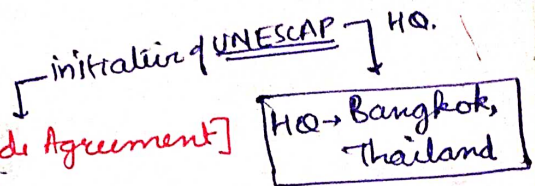 initiative of UNESCAP HQ.
Agreement]
HQ→ Bangkok,
Thailand